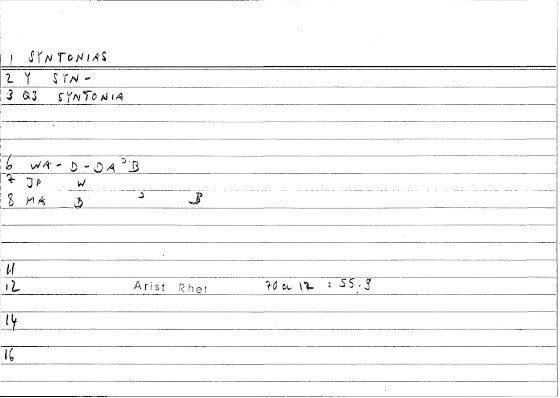 1 SYNTONIAS
2 Y SYN-
3 QJ SYNTONIA
6 WA-D-DA'B
7 JP W
8 MA B ' B
11
12 Arist Rhet 70a 12 : 55.9
14
16